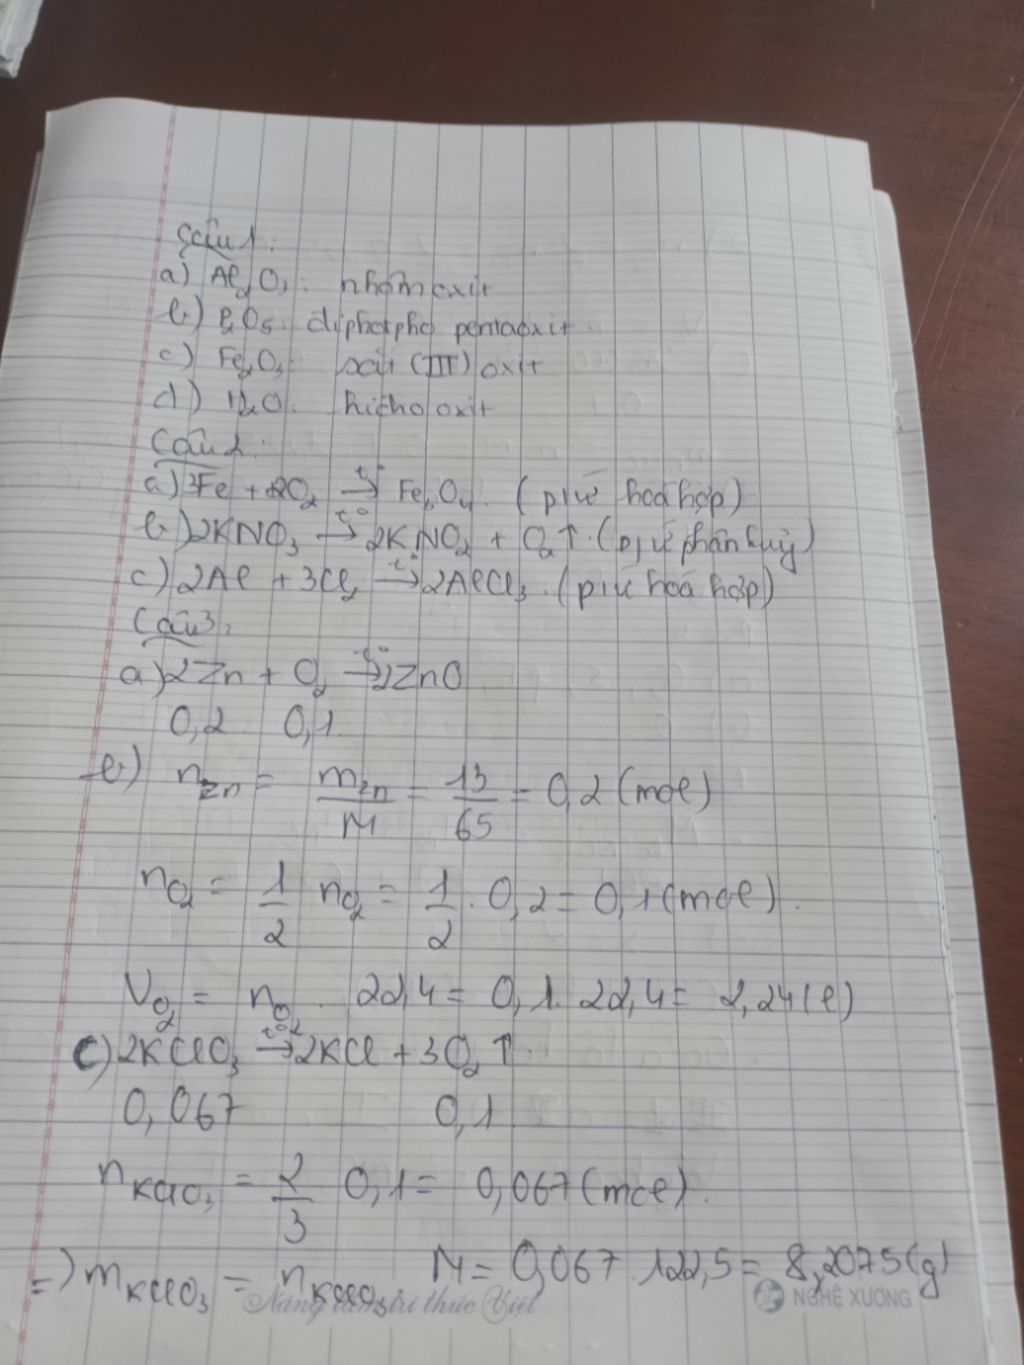 Câu 1:
a) Al2O3: nhôm oxit
b) P2O5: điphotpho pentaoxit.
c) Fe2O3: sắt (III) oxit
d) H2O: hiđro oxit
Câu 2:
a) 3Fe + 2O2 t°→ Fe3O4. (p/ứ hoá hợp)
b) 2KNO3 t°→ 2KNO2 + O2↑. (p/ứ phân huỷ)
c) 2Al + 3Cl2 t°→ 2AlCl3. (p/ứ hoá hợp)
Câu 3:
a) 2Zn + O2 t°→ 2ZnO
0,2 0,1
b) nZn = mZn/M = 13/65 = 0,2 (mol)
nO2 = 1/2 nO2 = 1/2 . 0,2 = 0,1 (mol).
VO2 = nO2 . 22,4 = 0,1 . 22,4 = 2,24 (l)
c) 2KClO3 t°→ 2KCl + 3O2↑
0,067 0,1
nKClO3 = 2/3 0,1 = 0,067 (mol).
=) mKClO3 = nKClO3 . M = 0,067 . 122,5 = 8,2075 (g)
Nâng tầm tri thức Việt NGHỆ XƯƠNG